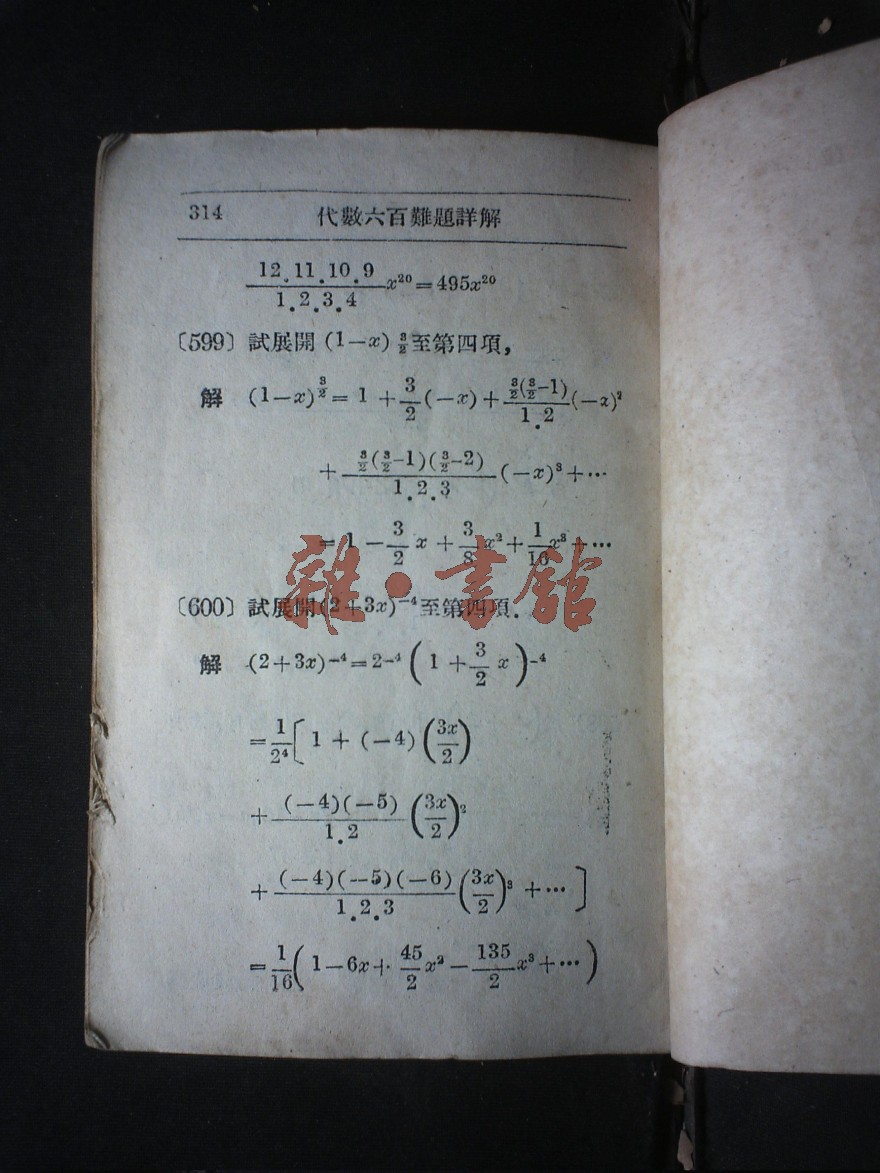 314 代數六百難題詳解
12.11.10.9/1.2.3.4 x²⁰=495x²⁰
〔599〕試展開 (1−x) 3/2 至第四項,
解 (1−x)^{3/2} = 1 + 3/2 (−x) + 3/2(3/2−1)/1.2 (−x)²
+ 3/2(3/2−1)(3/2−2)/1.2.3 (−x)³+⋯
= 1 − 3/2 x + 3/8 x² + 1/16 x³+⋯
雜·書館
〔600〕試展開(2+3x)⁻⁴至第四項.
解 (2+3x)⁻⁴=2⁻⁴ ( 1 + 3/2 x )⁻⁴
= 1/2⁴ [ 1 + (−4) (3x/2)
+ (−4)(−5)/1.2 (3x/2)²
+ (−4)(−5)(−6)/1.2.3 (3x/2)³ +⋯ ]
= 1/16 ( 1−6x+ 45/2 x² − 135/2 x³+⋯ )